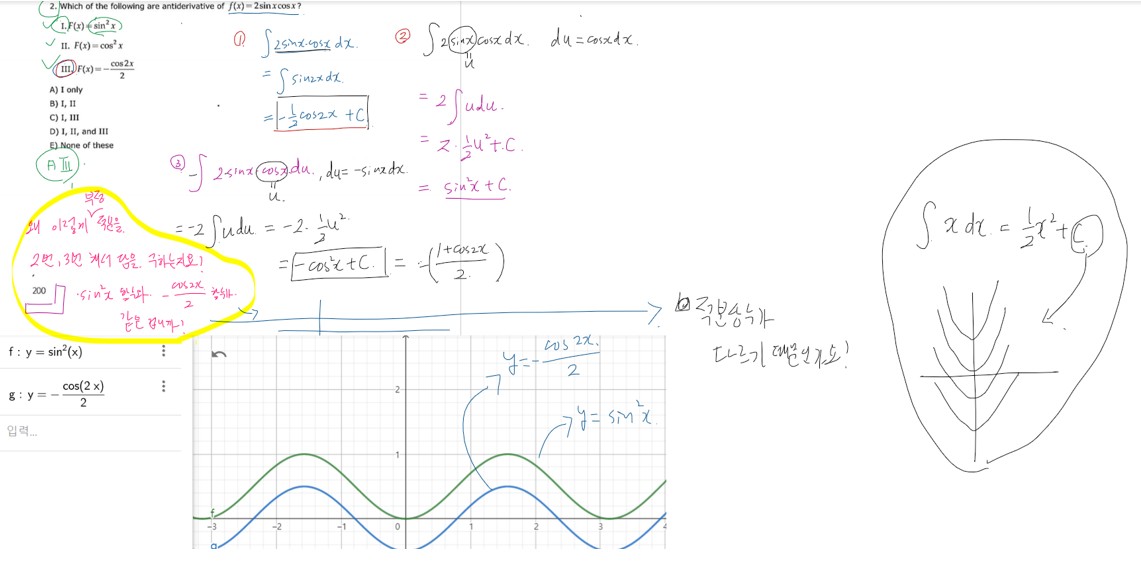 2. Which of the following are antiderivative of f(x)=2sin x cos x?
I. F(x)=sin² x
II. F(x)=cos² x
III. F(x)=-cos2x/2
A) I only
B) I, II
C) I, III
D) I, II, and III
E) None of these
A III.
① ∫2sinx·cosx dx.
= ∫sin2x dx.
= -1/2 cos2x +C
② ∫2 sinx cosx dx. du=cosx dx.
u
= 2∫u du.
= 2·1/2u²+C.
= sin²x+C.
③ -∫2sinx cosx du. , du=-sinx dx.
u.
= -2∫u du = -2·1/2u².
= -cos²x+C. = -(1+cos2x/2)
부정
왜 이렇게 적분을
2번, 3번 해서 답을 구하는지요?
200
·sin²x 함수와 -cos2x/2 함수가
같은 겁니까?
적분상수가
다르기 때문인가요?
∫x dx = 1/2x²+C
f : y = sin²(x)
g : y = -cos(2 x)/2
입력...
y=-cos2x/2
y=sin²x
2
1
-3 -2 -1 0 1 2 3 4
f
g